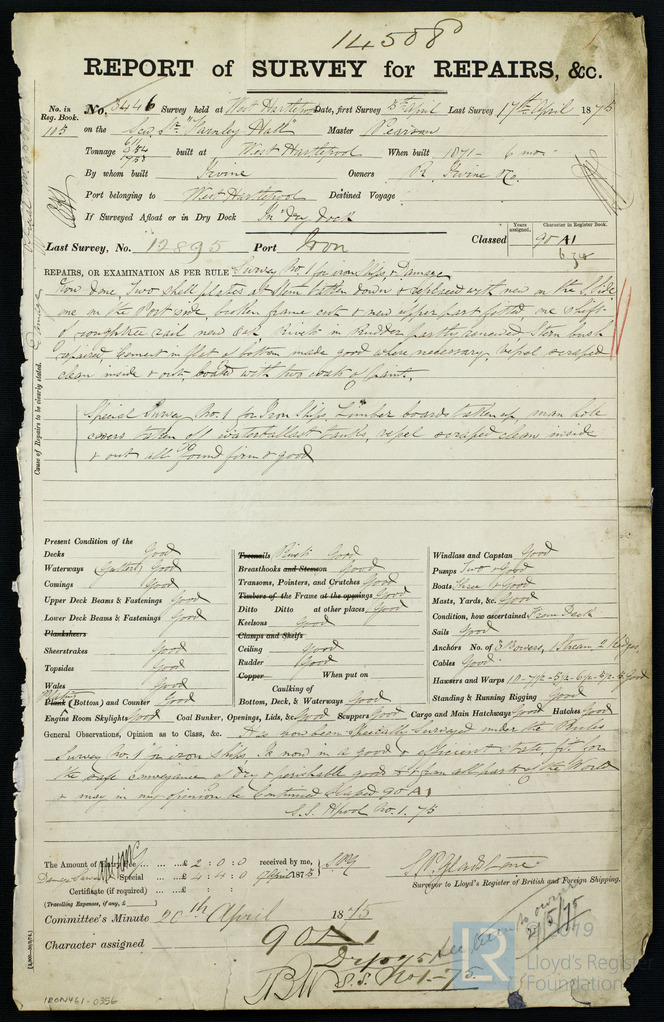 14508
REPORT of SURVEY for REPAIRS, &c.
No. in Reg. Book. No. 3446 Survey held at West Hartlepool Date, first Survey 5th April Last Survey 17th April 1875
105 on the Scw. Str. "Farnley Hall" Master
Tonnage built at West Hartlepool When built 1871 - 6 mo.
By whom built Irvine Owners R. Irvine & Co.
Port belonging to West Hartlepool Destined Voyage
If Surveyed Afloat or in Dry Dock In Dry Dock
Last Survey, No. 12895 Port Iron Classed Years assigned. Character in Register Book. 90 A1
REPAIRS, OR EXAMINATION AS PER RULE Survey No. 1 for iron Ships, & Damage
Now done, Two shell plates at Stem taken down & replaced with new on the S. Side
one on the Port side, broken frame cut & new upper part fitted, one shift
of roughtree rail new Oak in Rudder partly renewed Stern bush
repaired, Cement in flat of bottom made good where necessary, Vessel scraped
clean inside & out, coated with two coats of paint.
Special Survey No. 1 for Iron Ships Limber boards taken up, man hole
covers taken off waterballast tanks, vessel scraped clean inside
& out all found firm & good
Cause of Repairs to be clearly stated. Damage
Present Condition of the
Decks Good
Waterways (Gutters) Good
Comings Good
Upper Deck Beams & Fastenings Good
Lower Deck Beams & Fastenings Good
Planksheers
Sheerstrakes Good
Topsides Good
Wales Good
Plank Plating (Bottom) and Counter Good
Engine Room Skylights Good Coal Bunker, Openings, Lids, &c. Good Scuppers Good Cargo and Main Hatchways Good Hatches Good
Treenails Rivets Good
Breasthooks and Stemson Good
Transoms, Pointers, and Crutches Good
Timbers of the Frame at the openings Good
Ditto Ditto at other places, Good
Keelsons Good
Clamps and Shelfs
Ceiling Good
Rudder Good
Copper When put on
Caulking of
Bottom, Deck, & Waterways Good
Windlass and Capstan Good
Pumps Two & Good
Boats Three & Good
Masts, Yards, &c. Good
Condition, how ascertained From Deck
Sails Good
Anchors No. of 3 Bowers, Stream, 2 Kedges,
Cables Good
Hawsers and Warps Good
Standing & Running Rigging Good
General Observations, Opinion as to Class, &c. Has now been Specially Surveyed under the Rules
Survey No. 1 for iron ships. Is now in a good & efficient state, fit for
the safe conveyance of dry & perishable goods to & from all parts of the World
& may in my opinion be Continued Classed 90 A1
S.S. Hpool No. 1. 75
The Amount of Entry Fee ... ... £ 2 : 0 : 0 received by me,
Damage Survey Special ... £ 4 : 4 : 0 April 1875
Certificate (if required) ... £ : :
(Travelling Expenses, if any, £ )
S. P. Gladstone
Surveyor to Lloyd's Register of British and Foreign Shipping.
Committee's Minute 20th April 1875
Character assigned 90 A1
S.S. No 1 - 75.
See Letter to owner
2/5/75
© 2019
LR
Lloyd's Register
Foundation
IRON461-0356